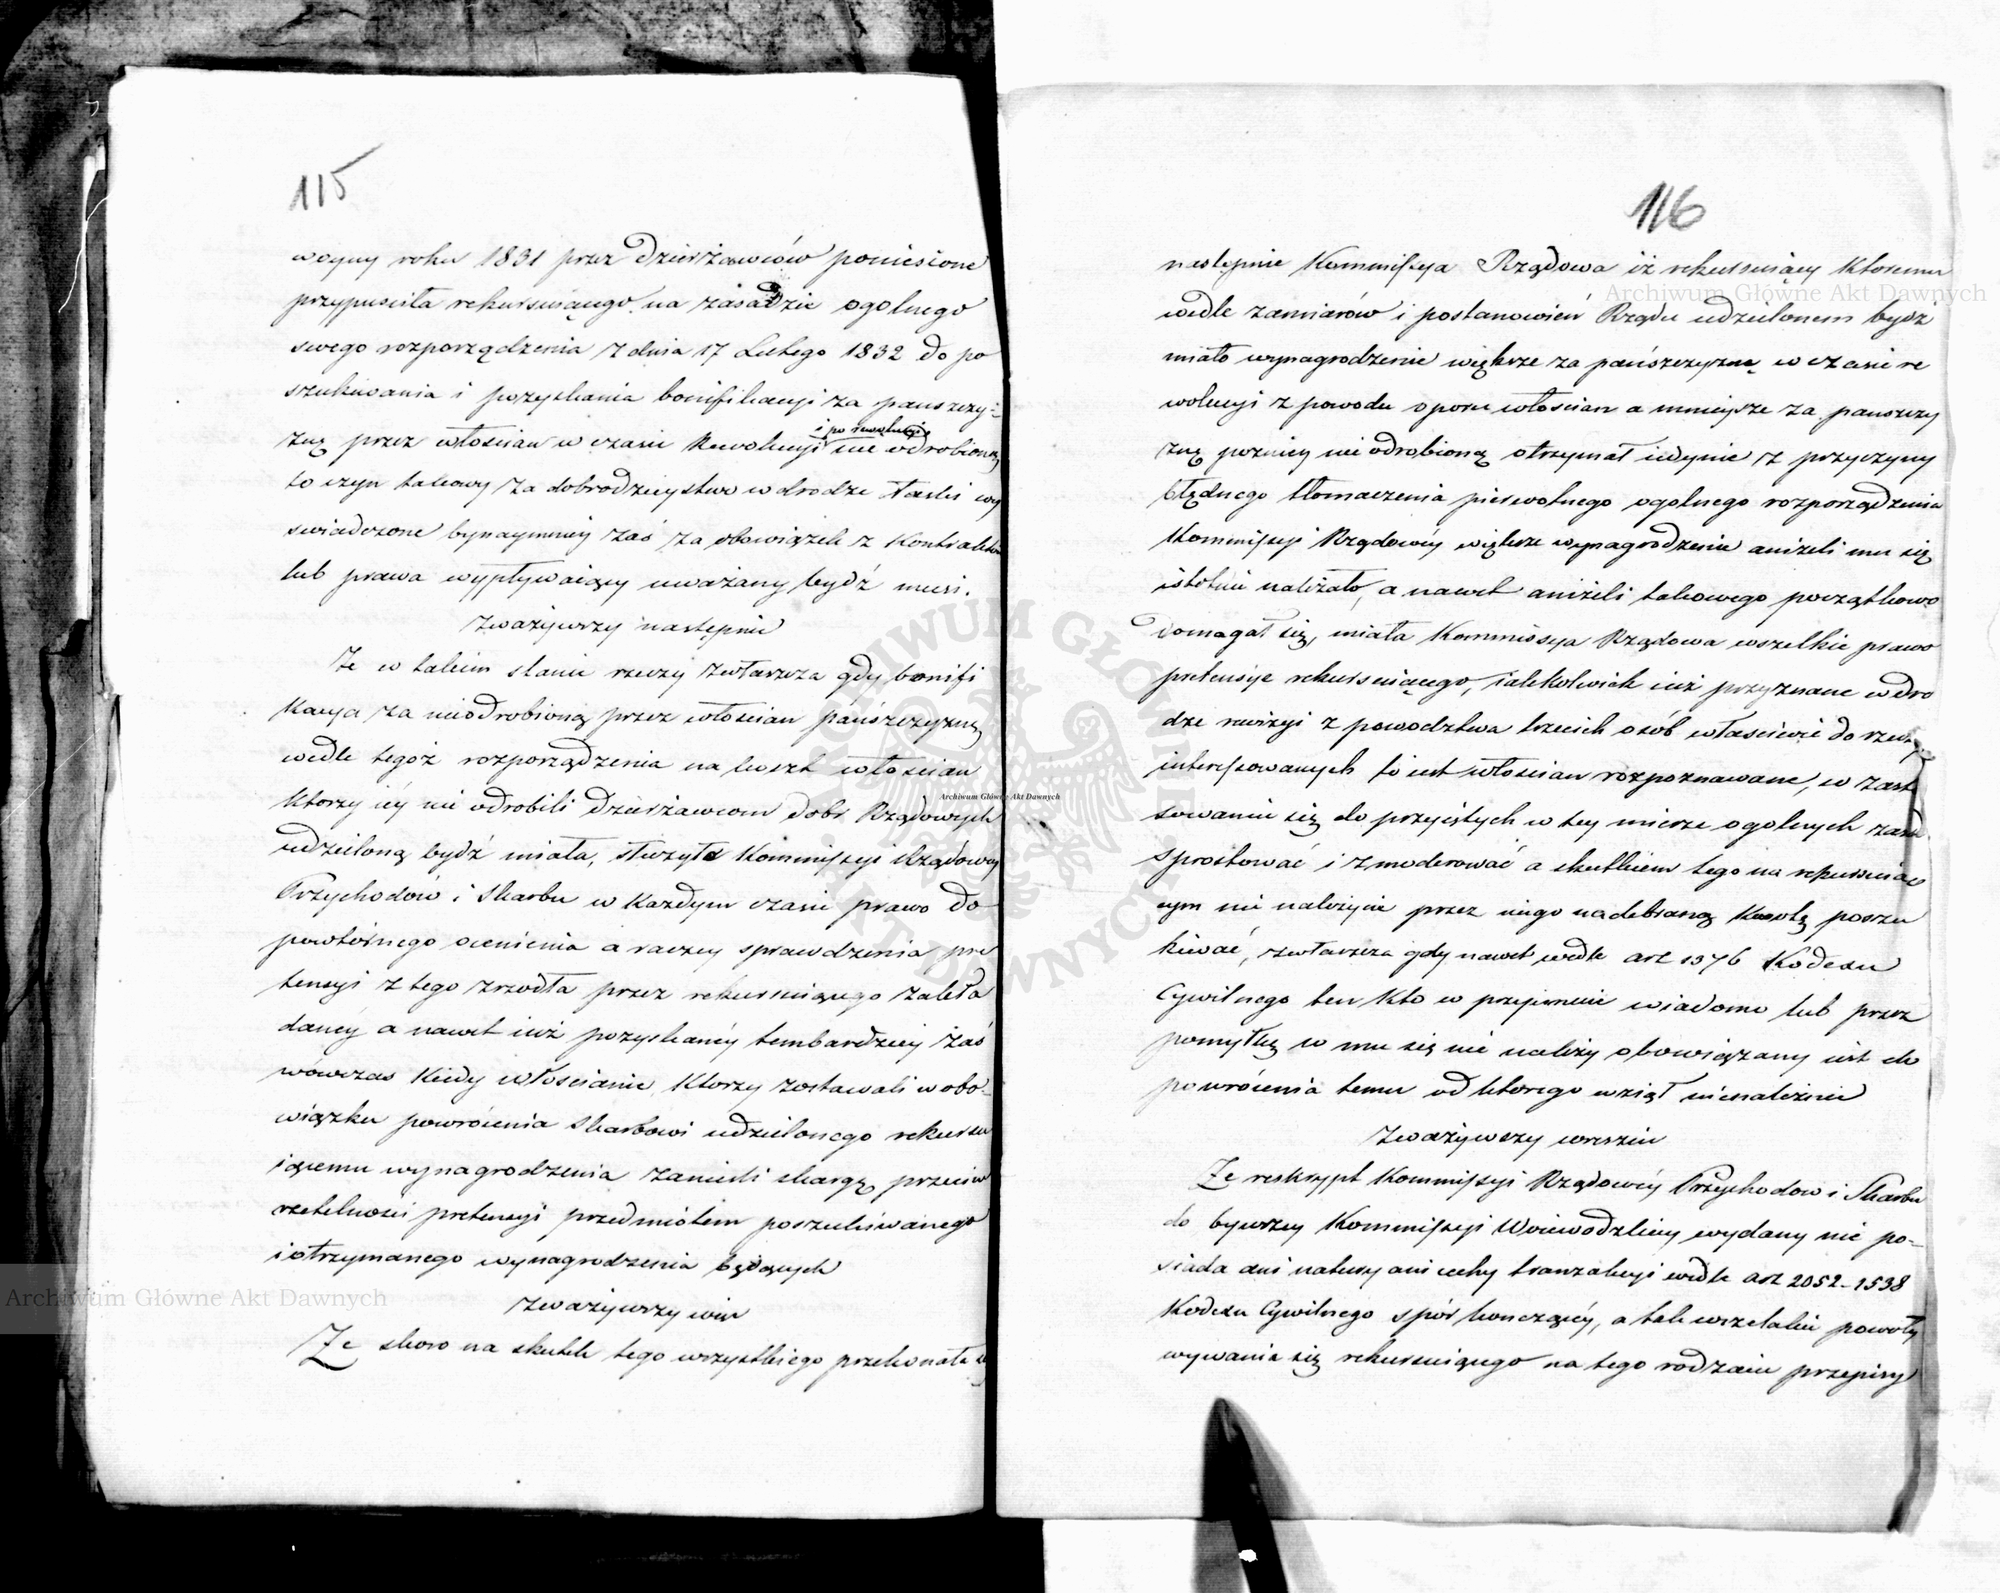 115
woyny roku 1831 przez Dzierżawców poniesione
przypuściła rekursuiącego na zasadzie ogolnego
swego rozporządzenia z dnia 17 Lutego 1832 do po
szukiwania i pozyskania bonifikacyi za pańszczy-
znę przez włościan w czasie Rewolucyi i po rewolucyi nie odrobioną
to czyn takowy za dobrodzieystwo w drodze łaski wy
świadczone bynaymniey zaś za obowiązek z Kontraktu
lub prawa wypływaiący uważany bydź musi.
Zważywszy następnie
Że w takim stanie rzeczy zwłaszcza gdy bonifi
kacya za nieodrobioną przez włościan pańszczyznę
wedle tegoż rozporządzenia na koszt włościan
ktorzy iéy nie odrobili Dzierżawcom dobr Rządowych
udzieloną bydź miała, służyło Kommissyi Rządowey
Przychodów i Skarbu w każdym czasie prawo do
powtórnego ocenienia a raczey sprawdzenia pre
tensyi z tego zrzodła przez rekursuiącego zakła
danéy a nawet iuż pozyskanéy tembardziey zaś
wówczas kiedy włościanie, ktorzy zostawali w obo-
wiązku powrócenia Skarbowi udzielonego rekursu
iącemu wynagrodzenia zanieśli skargę przeciw
rzetelności pretensyi przedmiotem poszukiwanego
i otrzymanego wynagrodzenia będących
Zważywszy więc
Że skoro na skutek tego wszystkiego przekonała się
116
następnie Kommissya Rządowa iż rekursuiący ktoremu
wedle zamiarów i postanowień Rządu udzielonem bydź
miało wynagrodzenie większe za pańszczyznę w czasie re
wolucyi z powodu oporu włościan a mnieysze za pańszczy
znę pozniey nie odrobioną otrzymał iedynie z przyczyny
błędnego tłomaczenia pierwotnego ogolnego rozporządzenia
Kommissyi Rządowéy większe wynagrodzenie aniżeli mu się
istotnie należało, a nawet aniżeli takowego początkowo
domagał się, miała Kommissya Rządowa wszelkie prawo
pretensye rekursuiącego, iakkolwiek iuż przyznane w dro
dze rewizyi z powodztwa trzecich osób właściwie do rzeczy
interessowanych to iest włościan rozpoznawane, w zast
sowaniu się do przyiętych w tey mierze ogolnych zasad
sprostować i zmoderować a skutkiem tego na rekursuią
cym nie należycie przez niego nadebraną kwotę poszu
kiwać, zwłaszcza gdy nawet wedle art 1376 Kodexu
Cywilnego ten kto w przyimuie wiadomo lub przez
pomyłkę co mu się nie należy obowiązany iest do
powrócenia temu od ktorego wziął nienależnie
Zważywszy wreszcie
Że reskrypt Kommissyi Rządowéy Przychodow i Skarbu
do bywszey Kommissyi Woiewodzkiey wydany nie po-
siada ani natury ani cechy tranzakcyi wedle art 2052-1538
Kodexu Cywilnego spór kończącéy, a tak wszelakie powoły
wywania się rekursuiącego na tego rodzaiu przepisy
Archiwum Główne Akt Dawnych
Archiwum Główne Akt Dawnych
Archiwum Główne Akt Dawnych
ARCHIWUM GŁÓWNE AKT DAWNYCH